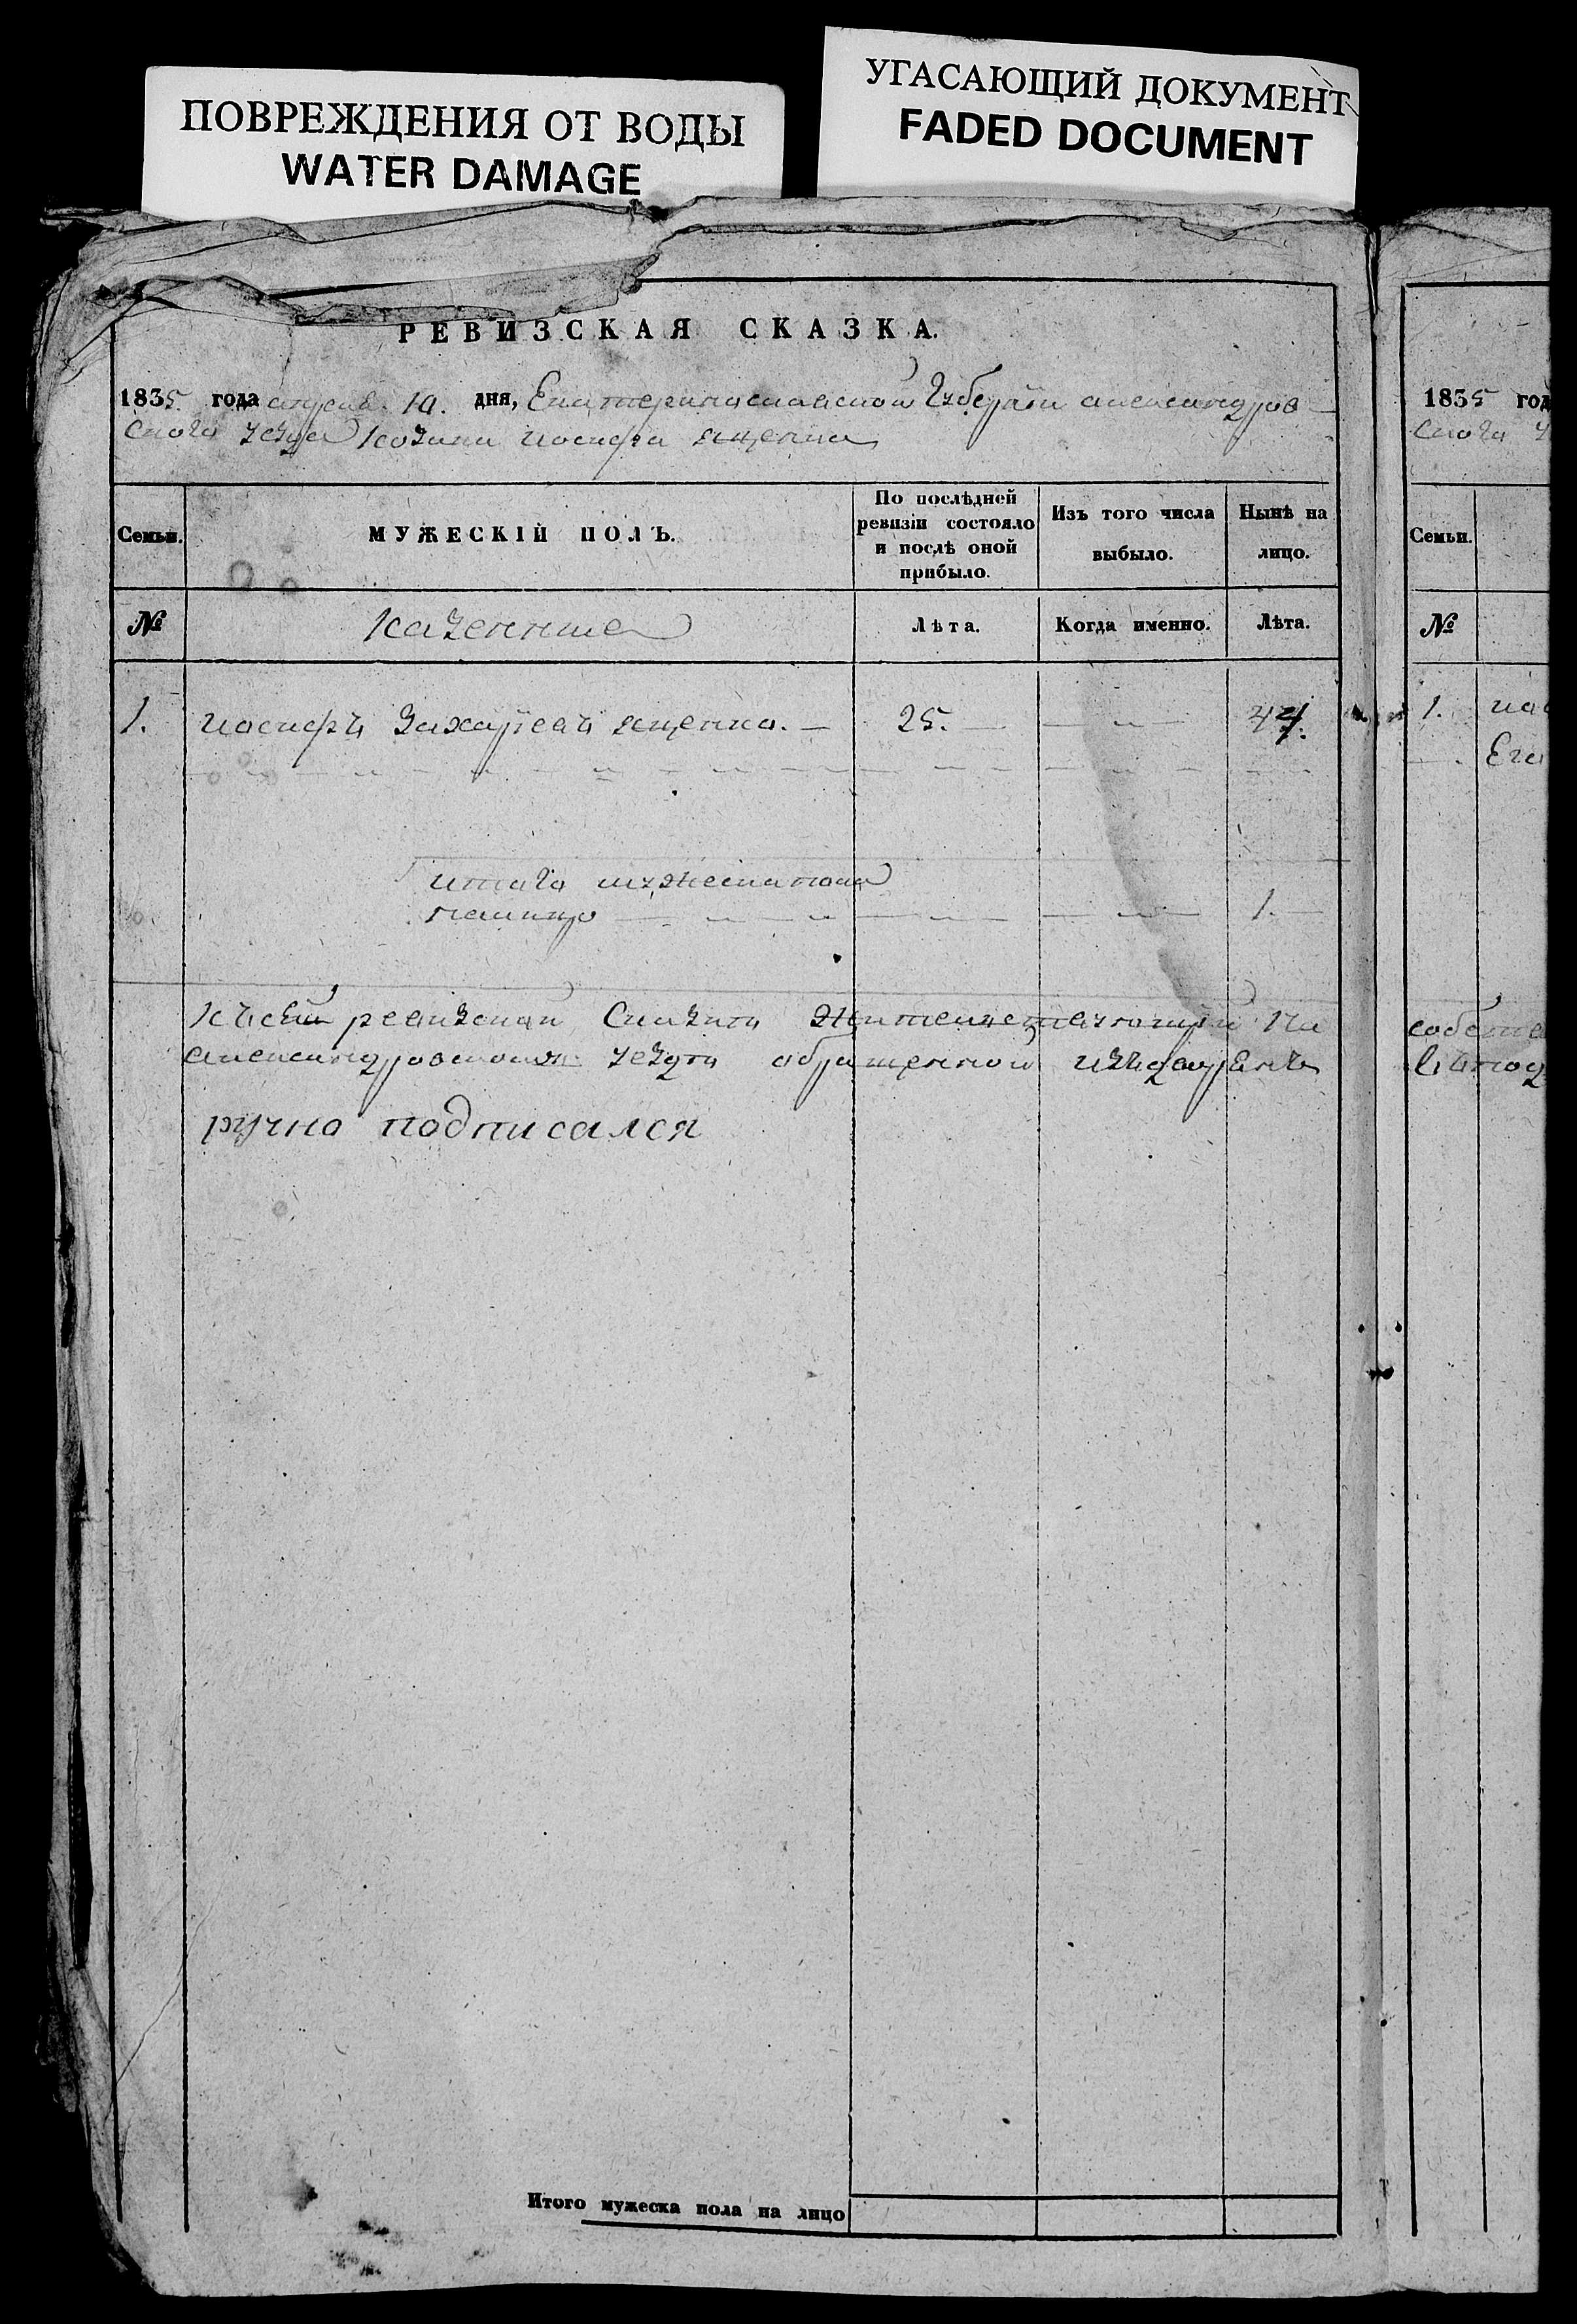 ПОВРЕЖДЕНИЯ ОТ ВОДЫ
WATER DAMAGE
УГАСАЮЩИЙ ДОКУМЕНТ
FADED DOCUMENT
РЕВИЗСКАЯ СКАЗКА.
1835. года апреля. 10. дня, Екатеринославской Губернiи александров
ского уезда Козака иосифа ященка
Семьи.
МУЖЕСКІЙ ПОЛЪ.
По послѣдней
ревизіи состояло
и послѣ оной
прибыло.
Изъ того числа
выбыло.
Нынѣ на
лицо.
№
Казенные
Лѣта.
Когда именно.
Лѣта.
1. иосифъ Захарiевъ ященко. — 25. 44.
итаго мужеска пола
налицо 1.
Къ сей ревизской Сказки
александровском уезди
ручно подписался
Итого мужеска пола на лицо
1835 год
ского
Семьи.
№
1.
Его